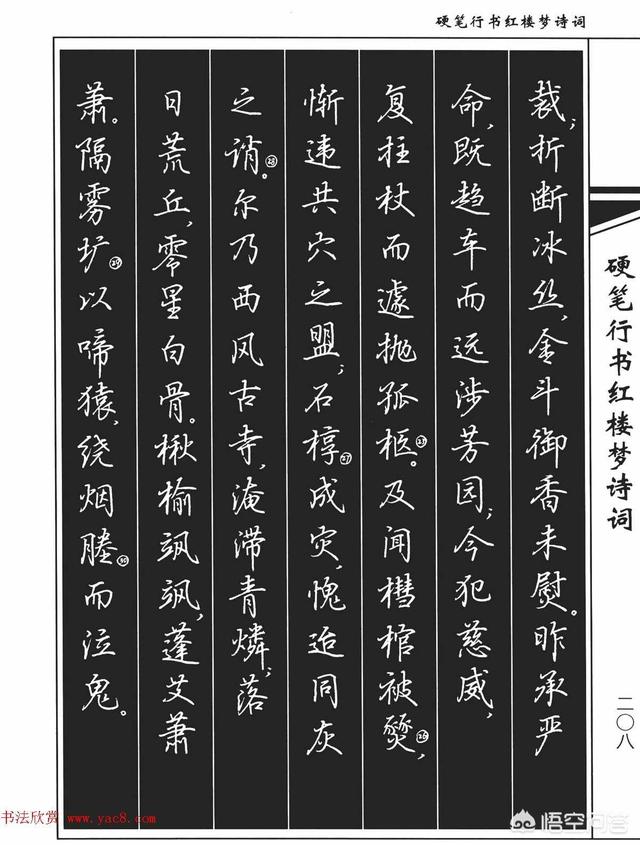 硬笔行书红楼梦诗词
裁;折断冰丝,金斗御香未熨。昨承严
命,既趋车而远涉芳园;今犯慈威,
复拄杖而遽抛孤柩㉕。及闻槥棺被燹㉖,
惭违共穴之盟;石椁㉗成灾,愧迨同灰
之诮㉘。尔乃西风古寺,淹滞青燐;落
日荒丘,零星白骨。楸榆飒飒,蓬艾萧
萧。隔雾圹㉙以啼猿,绕烟塍㉚而泣鬼。
硬笔行书红楼梦诗词
二〇八
书法欣赏 www.yac8.com
悟空问答